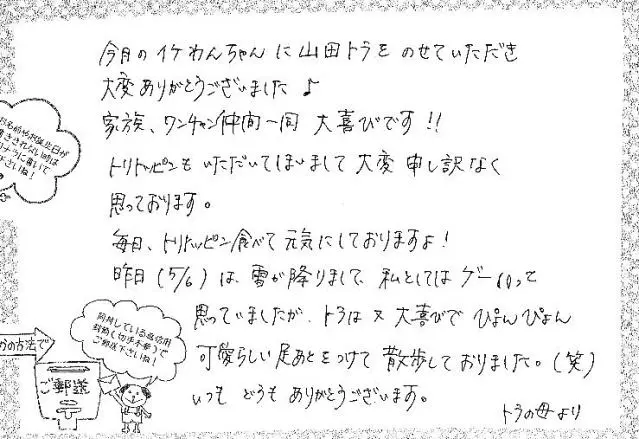 今月のイケわんちゃんに山田トラをのせていただき
大変ありがとうございました♪
家族、ワンチャン仲間一同 大喜びです!!
トリトッピンもいただいてしまいまして大変申し訳なく
思っております。
毎日、トリトッピン食べて元気にしておりますよ!
昨日(5/6)は、雪が降りまして、私としてはゲーッって
思っていましたが、トラは又大喜びでぴょんぴょん
可愛らしい足あとをつけて散歩しておりました。(笑)
いつもどうもありがとうございます。
トラの母より
に書いて
下さいね!
同封している返信用
封筒(切手不要)で
ご郵送下さいね!
の方法で
ご郵送